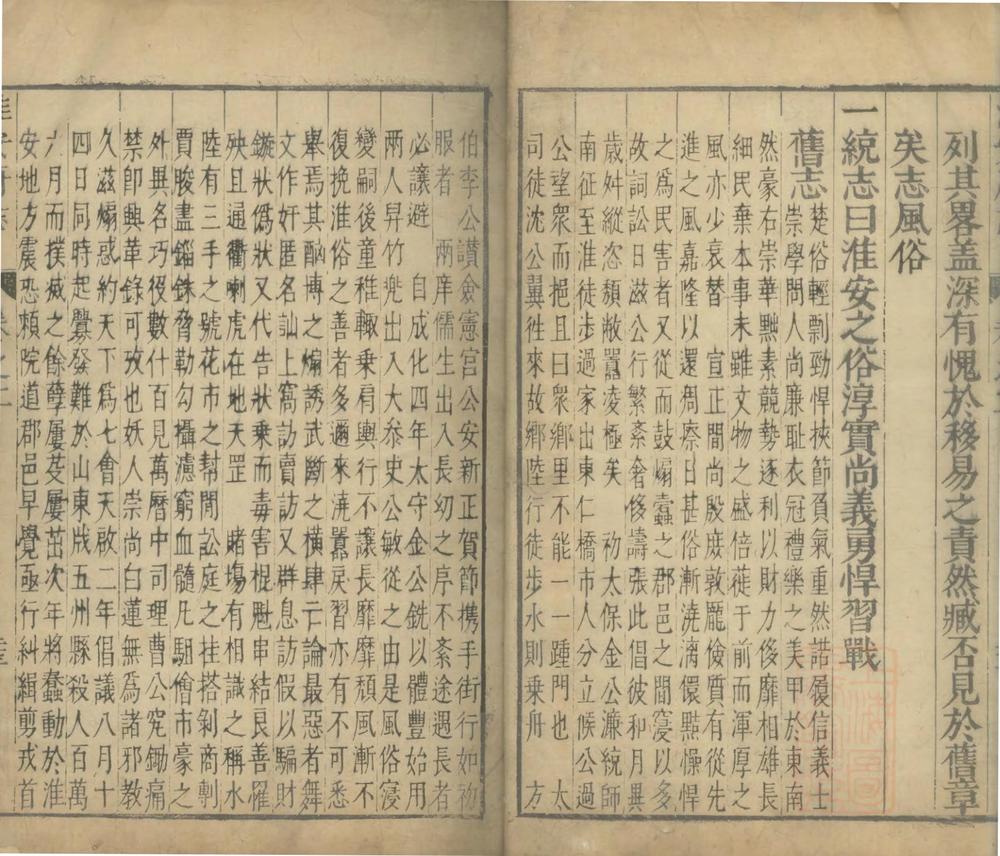 列其畧盖深有愧於移易之責然臧否見於舊章
矣志風俗
一統志曰淮安之俗淳實尚義勇悍習戰
舊志楚俗輕剽勁悍挾節負氣重然諾履信義士
崇學問人尚廉耻衣冠禮樂之美甲於東南
然豪右崇華黜素競勢逐利以財力侈靡相雄長
細民棄本事末雖文物之盛倍蓰于前而渾厚之
風亦少衰替 宣正間尚殷庻敦龎儉質有從先
進之風嘉隆以還凋瘵日甚俗漸澆漓儇黠慓悍
之爲民害者又從而鼓煽蠹之郡邑之間寖以多
故詞訟日滋公行繁紊奢侈譸張此倡彼和月異
歲舛縱恣頽敝囂凌極矣 初太保金公濂統師
南征至淮徒步過家出東仁橋市人分立候公過
公望衆而挹且曰衆鄉里不能一一踵門也 太
司徒沈公翼徃來故鄉陸行徒步水則乗舟 方
伯李公讃僉憲宫公安新正賀節携手街行如初
服者 兩庠儒生出入長幼之序不紊途遇長者
必讓避 自成化四年太守金公銑以體豐始用
兩人昇竹兠出入大叅史公敏從之由是風俗寖
變嗣後童稚輙乗肩輿行不讓長靡靡頽風漸不
復挽淮俗之善者多邇來澆囂戾習亦有不可悉
舉焉其酗博之煽誘武斷之横肆亡論最惡者舞
文作奸匿名訕上窩訪賣訪又群息訪假以騙財
鏇狀僞狀又代告狀乗而毒害棍魁串結良善罹
殃且通衢喇虎在地天罡 賭塲有相識之稱水
陸有三手之號花市之幇閒訟庭之挂搭剝商剸
賈朘盡錙銖脅勒勾攝濾窮血髓凡駔儈市豪之
外異名巧役數什百見萬曆中司理曹公䆒鋤痛
禁卽興革錄可攷也妖人崇尚白蓮無爲諸邪教
久滋煽惑約天下爲七會天啟二年倡議八月十
四日同時起釁發難於山東戕五州縣殺人百萬
六月而撲滅之餘孽屢芟屢茁次年將蠢動於淮
安地方震恐頼院道郡邑早覺亟行糾緝剪戎首